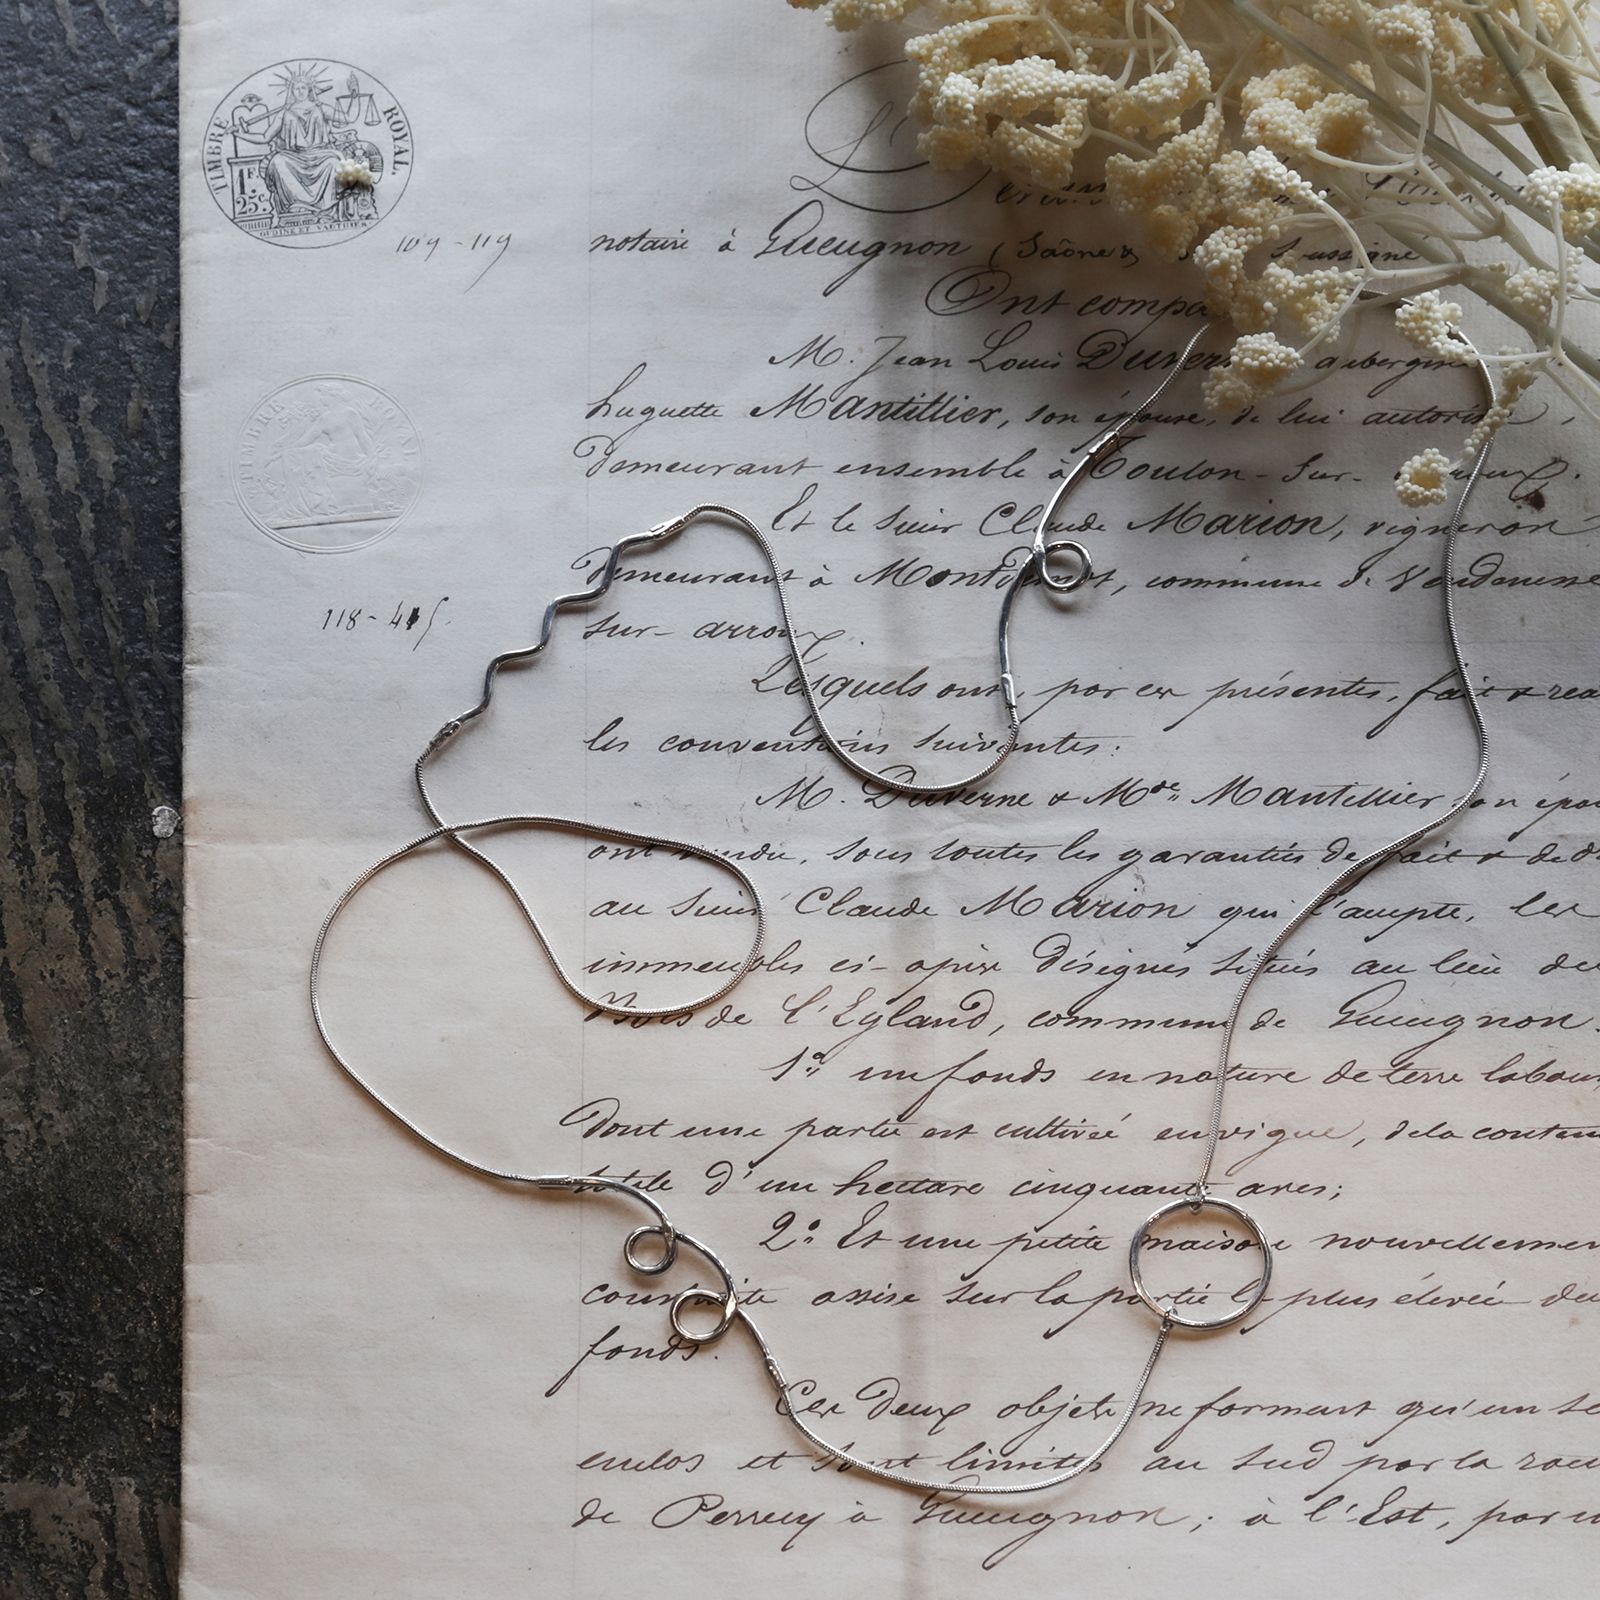 TIMBRE ROYAL
1F.
25c.
OUDINÉ ET VAUTHIER
109 - 119
notaire à Gueugnon (Saône &
Ont compa
M. Jean Louis Duvern aubergiste
huguette Mantillier, son épouse, de lui autorisée,
Demeurant ensemble à Toulon - Sur -
TIMBRE ROYAL
Et le sieur Claude Marion, vigneron
Demeurant à commune de Vendenesse
118 -
sur - arroux.
Lesquels ont, par ces présentes, fait &
les conventions suivantes:
M. Duverne & Mde. Mantillier son épou
ont vendu, sous toutes les garanties de fait & de d
au sieur Claude Marion qui l'accepte, les
immeubles ci - après désignés situés au lieu du
Bois de l'Egland, commune de Gueugnon.
1o. un fonds en nature de terre labou
Dont une partie est cultivée en vigne, de la conten
totale d'un hectare cinquante ares;
2o. Et une petite maison nouvellemen
construite assise sur la partie la plus élevée du
fonds.
Ces deux objets ne forment qu'un se
enclos et sont limités au sud par la rou
de Perrecy à Gueugnon; à l'Est, par u